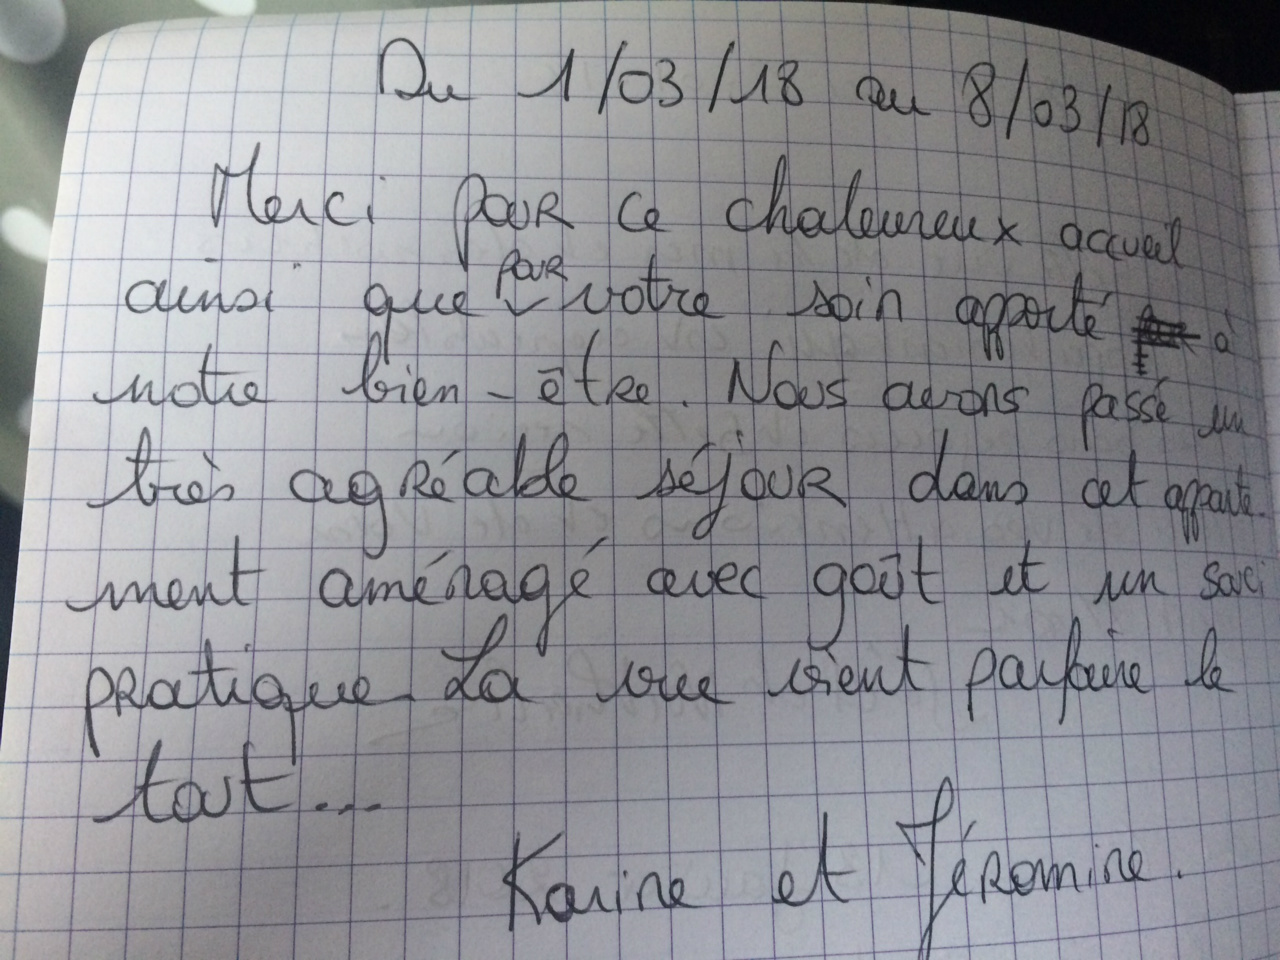 Du 1/03/18 au 8/03/18
Merci pour ce chaleureux accueil
ainsi que pour votre soin apporté à
notre bien-être. Nous avons passé un
très agréable séjour dans cet apparte-
ment aménagé avec goût et un souci
pratique. La vue vient parfaire le
tout...
Karine et Jéromine.